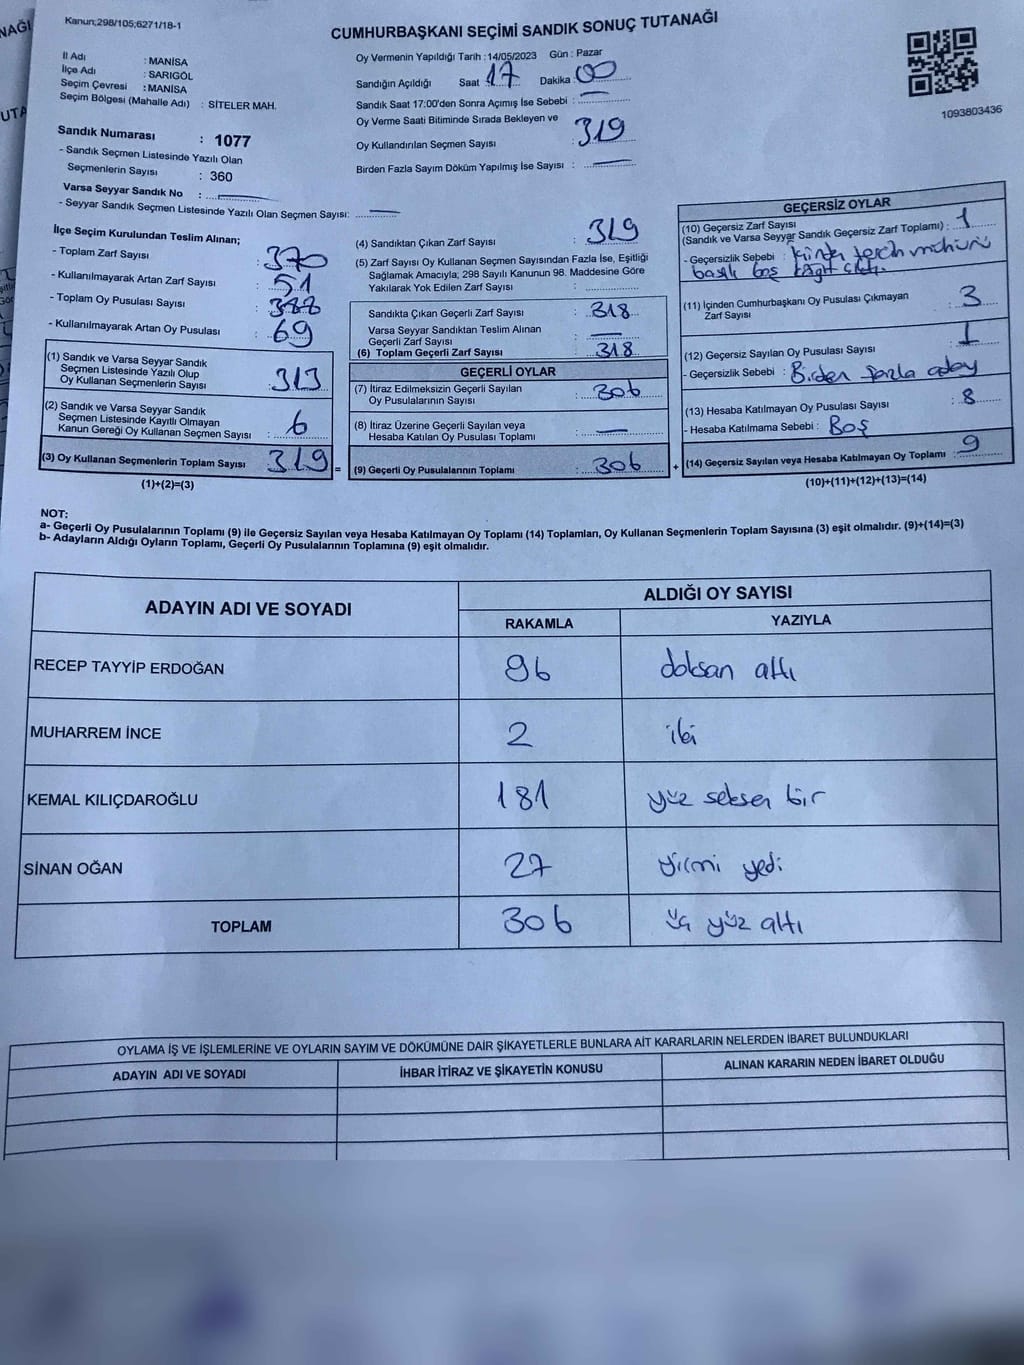 Kanun;298/105;6271/18-1
CUMHURBAŞKANI SEÇİMİ SANDIK SONUÇ TUTANAĞI
İl Adı : MANİSA
İlçe Adı : SARIGÖL
Seçim Çevresi : MANİSA
Seçim Bölgesi (Mahalle Adı) : SİTELER MAH.
Sandık Numarası : 1077
- Sandık Seçmen Listesinde Yazılı Olan
Seçmenlerin Sayısı : 360
Varsa Seyyar Sandık No :
- Seyyar Sandık Seçmen Listesinde Yazılı Olan Seçmen Sayısı:
Oy Vermenin Yapıldığı Tarih : 14/05/2023 Gün : Pazar
Sandığın Açıldığı Saat 17 Dakika : 00
Sandık Saat 17:00'den Sonra Açımış İse Sebebi :
Oy Verme Saati Bitiminde Sırada Bekleyen ve
Oy Kullandırılan Seçmen Sayısı : 319
Birden Fazla Sayım Döküm Yapılmış İse Sayısı :
1093803436
İlçe Seçim Kurulundan Teslim Alınan;
- Toplam Zarf Sayısı : 370
- Kullanılmayarak Artan Zarf Sayısı : 51
- Toplam Oy Pusulası Sayısı : 388
- Kullanılmayarak Artan Oy Pusulası : 69
(1) Sandık ve Varsa Seyyar Sandık
Seçmen Listesinde Yazılı Olup
Oy Kullanan Seçmenlerin Sayısı : 313
(2) Sandık ve Varsa Seyyar Sandık
Seçmen Listesinde Kayıtlı Olmayan
Kanun Gereği Oy Kullanan Seçmen Sayısı : 6
(3) Oy Kullanan Seçmenlerin Toplam Sayısı 319 =
(1)+(2)=(3)
(4) Sandıktan Çıkan Zarf Sayısı : 319
(5) Zarf Sayısı Oy Kullanan Seçmen Sayısından Fazla İse, Eşitliği
Sağlamak Amacıyla; 298 Sayılı Kanunun 98. Maddesine Göre
Yakılarak Yok Edilen Zarf Sayısı :
Sandıkta Çıkan Geçerli Zarf Sayısı : 318
Varsa Seyyar Sandıktan Teslim Alınan
Geçerli Zarf Sayısı :
(6) Toplam Geçerli Zarf Sayısı : 318
GEÇERLİ OYLAR
(7) İtiraz Edilmeksizin Geçerli Sayılan
Oy Pusulalarının Sayısı : 306
(8) İtiraz Üzerine Geçerli Sayılan veya
Hesaba Katılan Oy Pusulası Toplamı :
(9) Geçerli Oy Pusulalarının Toplamı : 306 +
GEÇERSİZ OYLAR
(10) Geçersiz Zarf Sayısı
(Sandık ve Varsa Seyyar Sandık Geçersiz Zarf Toplamı) : 1
- Geçersizlik Sebebi : içinden tercih mühürü
basılı boş kağıt çıktı.
(11) İçinden Cumhurbaşkanı Oy Pusulası Çıkmayan
Zarf Sayısı : 3
(12) Geçersiz Sayılan Oy Pusulası Sayısı : 1
- Geçersizlik Sebebi : Birden fazla aday
(13) Hesaba Katılmayan Oy Pusulası Sayısı : 8
- Hesaba Katılmama Sebebi : Boş
(14) Geçersiz Sayılan veya Hesaba Katılmayan Oy Toplamı : 9
(10)+(11)+(12)+(13)=(14)
NOT:
a- Geçerli Oy Pusulalarının Toplamı (9) ile Geçersiz Sayılan veya Hesaba Katılmayan Oy Toplamı (14) Toplamları, Oy Kullanan Seçmenlerin Toplam Sayısına (3) eşit olmalıdır. (9)+(14)=(3)
b- Adayların Aldığı Oyların Toplamı, Geçerli Oy Pusulalarının Toplamına (9) eşit olmalıdır.
ADAYIN ADI VE SOYADI ALDIĞI OY SAYISI
RAKAMLA YAZIYLA
RECEP TAYYİP ERDOĞAN 96 doksan altı
MUHARREM İNCE 2 iki
KEMAL KILIÇDAROĞLU 181 yüz seksen bir
SİNAN OĞAN 27 yirmi yedi
TOPLAM 306 üç yüz altı
OYLAMA İŞ VE İŞLEMLERİNE VE OYLARIN SAYIM VE DÖKÜMÜNE DAİR ŞİKAYETLERLE BUNLARA AİT KARARLARIN NELERDEN İBARET BULUNDUKLARI
ADAYIN ADI VE SOYADI İHBAR İTİRAZ VE ŞİKAYETİN KONUSU ALINAN KARARIN NEDEN İBARET OLDUĞU